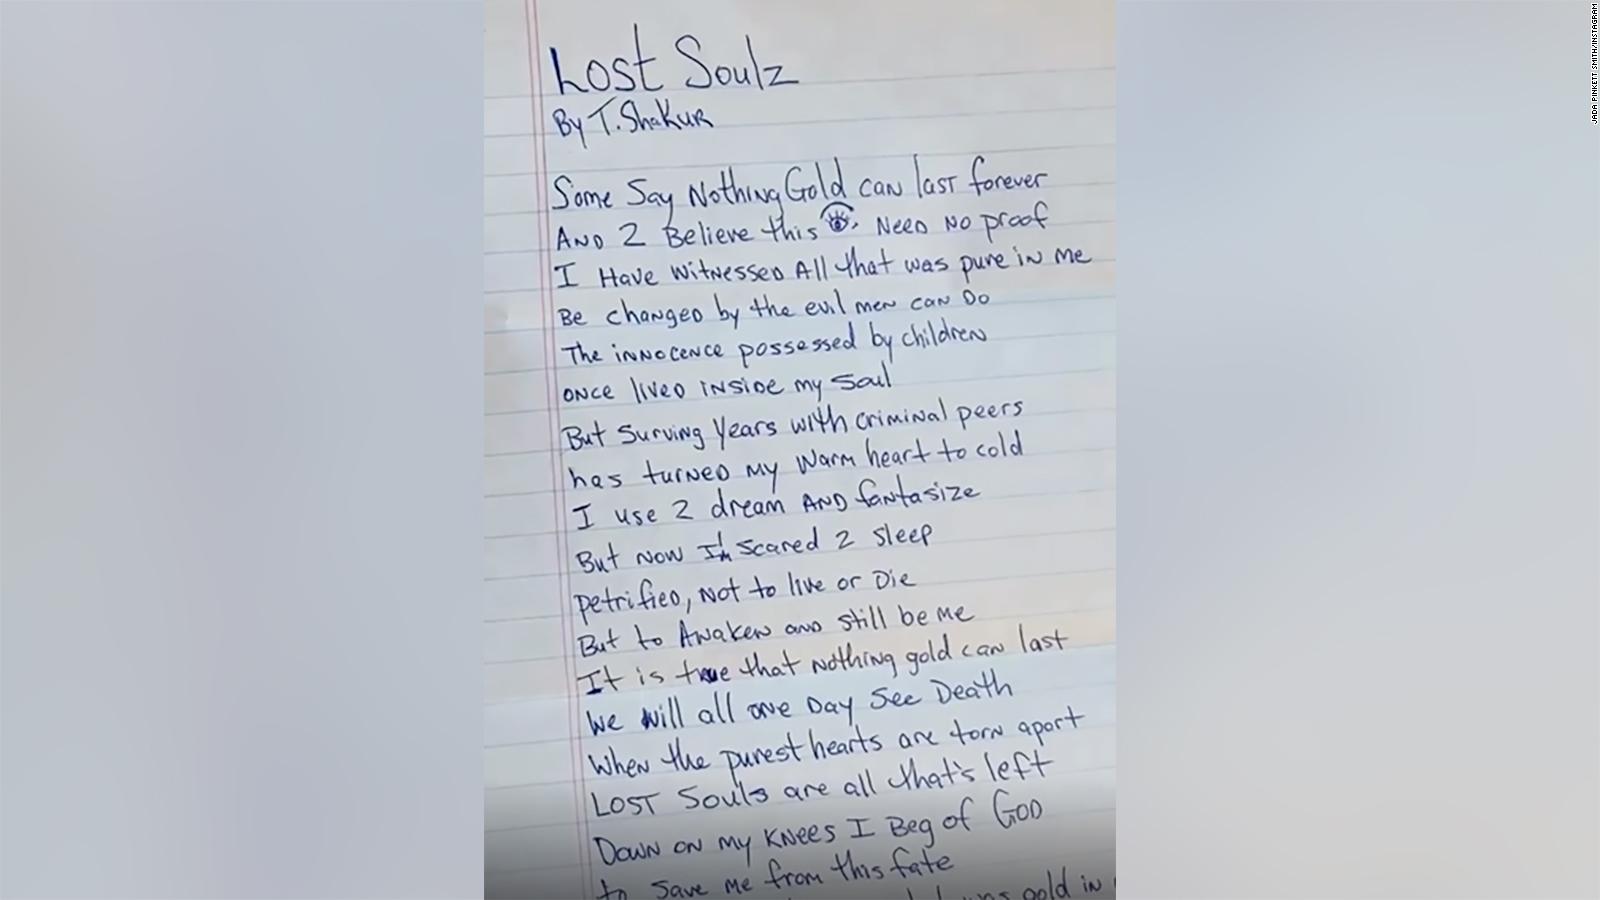 Lost Soulz
By T. Shakur
Some Say Nothing Gold can last forever
AND 2 Believe this Need No proof
I Have witnessed All that was pure in me
Be changed by the evil men can Do
The innocence possessed by children
once lived inside my soul
But Surving Years with criminal peers
has turned my warm heart to cold
I use 2 dream AND fantasize
But now I'm scared 2 sleep
petrified, not to live or Die
But to Awaken and still be me
It is true that nothing gold can last
We will all one Day See Death
When the purest hearts are torn apart
LOST Souls are all that's left
Down on my knees I Beg of GOD
to save me from this fate
gold in
JADA PINKETT SMITH/INSTAGRAM